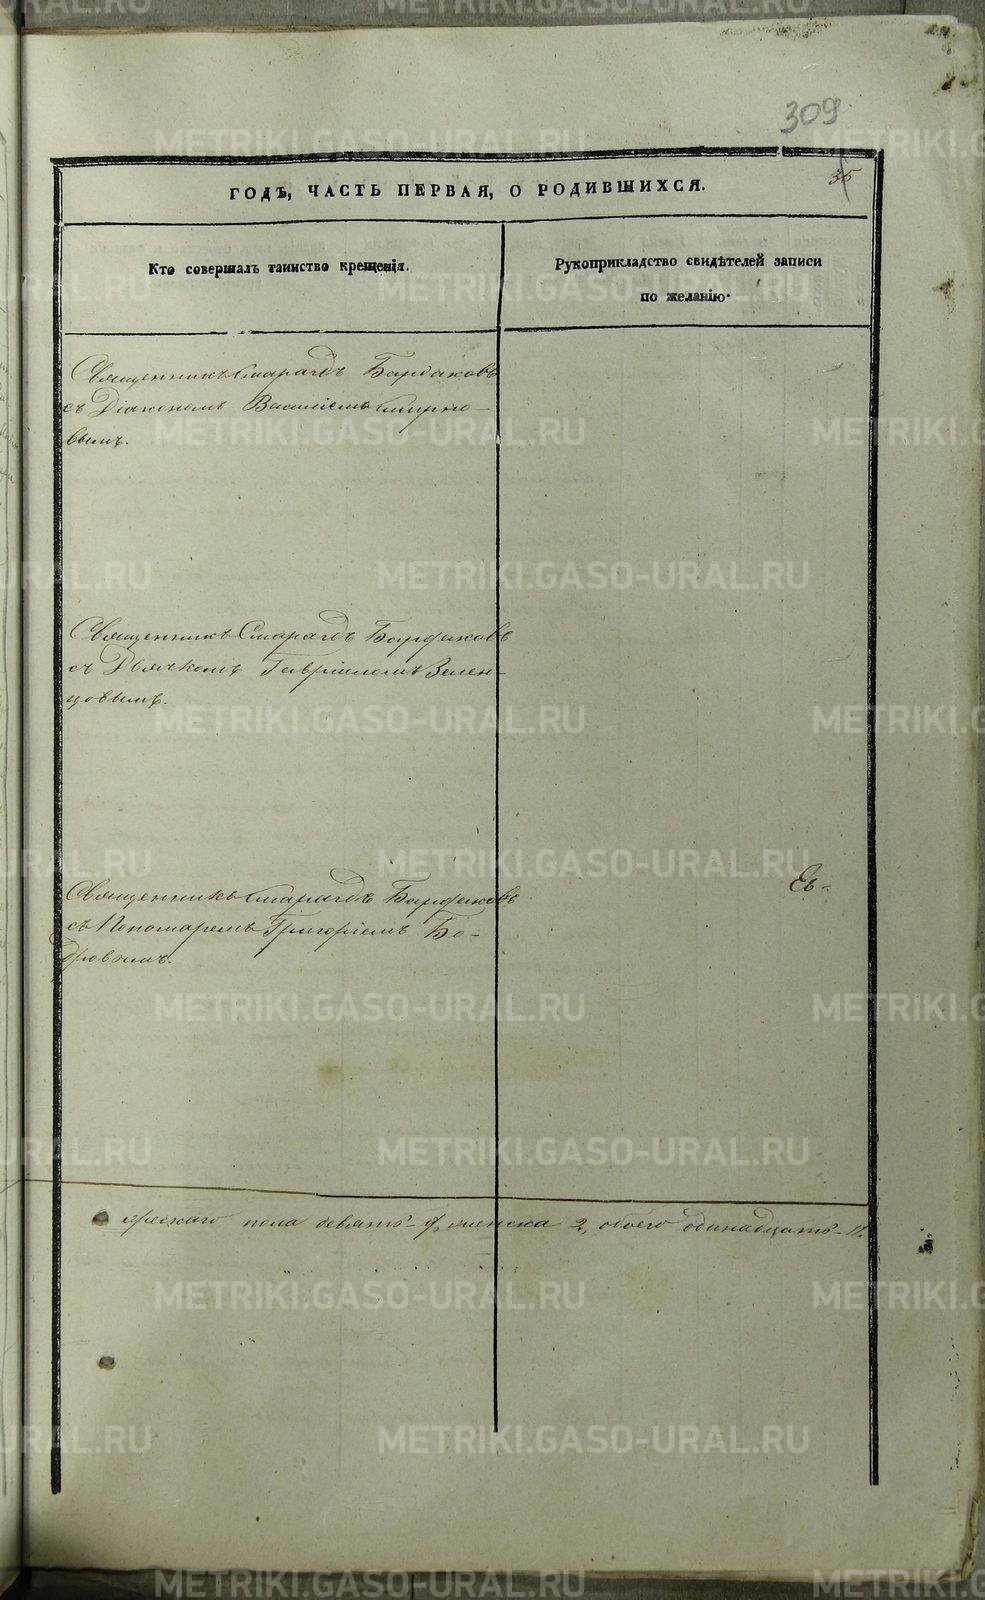 309
35
ГОДЪ, ЧАСТЬ ПЕРВАЯ, О РОДИВШИХСЯ.
Кто совершалъ таинство крещенія.
Рукоприкладство свидѣтелей записи
по желанію.
Священникъ Смарагдъ Бардаковъ
съ Діакономъ Василіемъ Смирно-
вымъ.
Священникъ Смарагдъ Бардаковъ
съ Дьячкомъ Гавріиломъ Зелен-
цовымъ.
Священникъ Смарагдъ Бардаковъ
съ Пономаремъ Григоріемъ Бо-
дровымъ.
Ев-
мужескаго пола девять 9, женска 2, обоего одинадцать 11.
METRIKI.GASO-URAL.RU